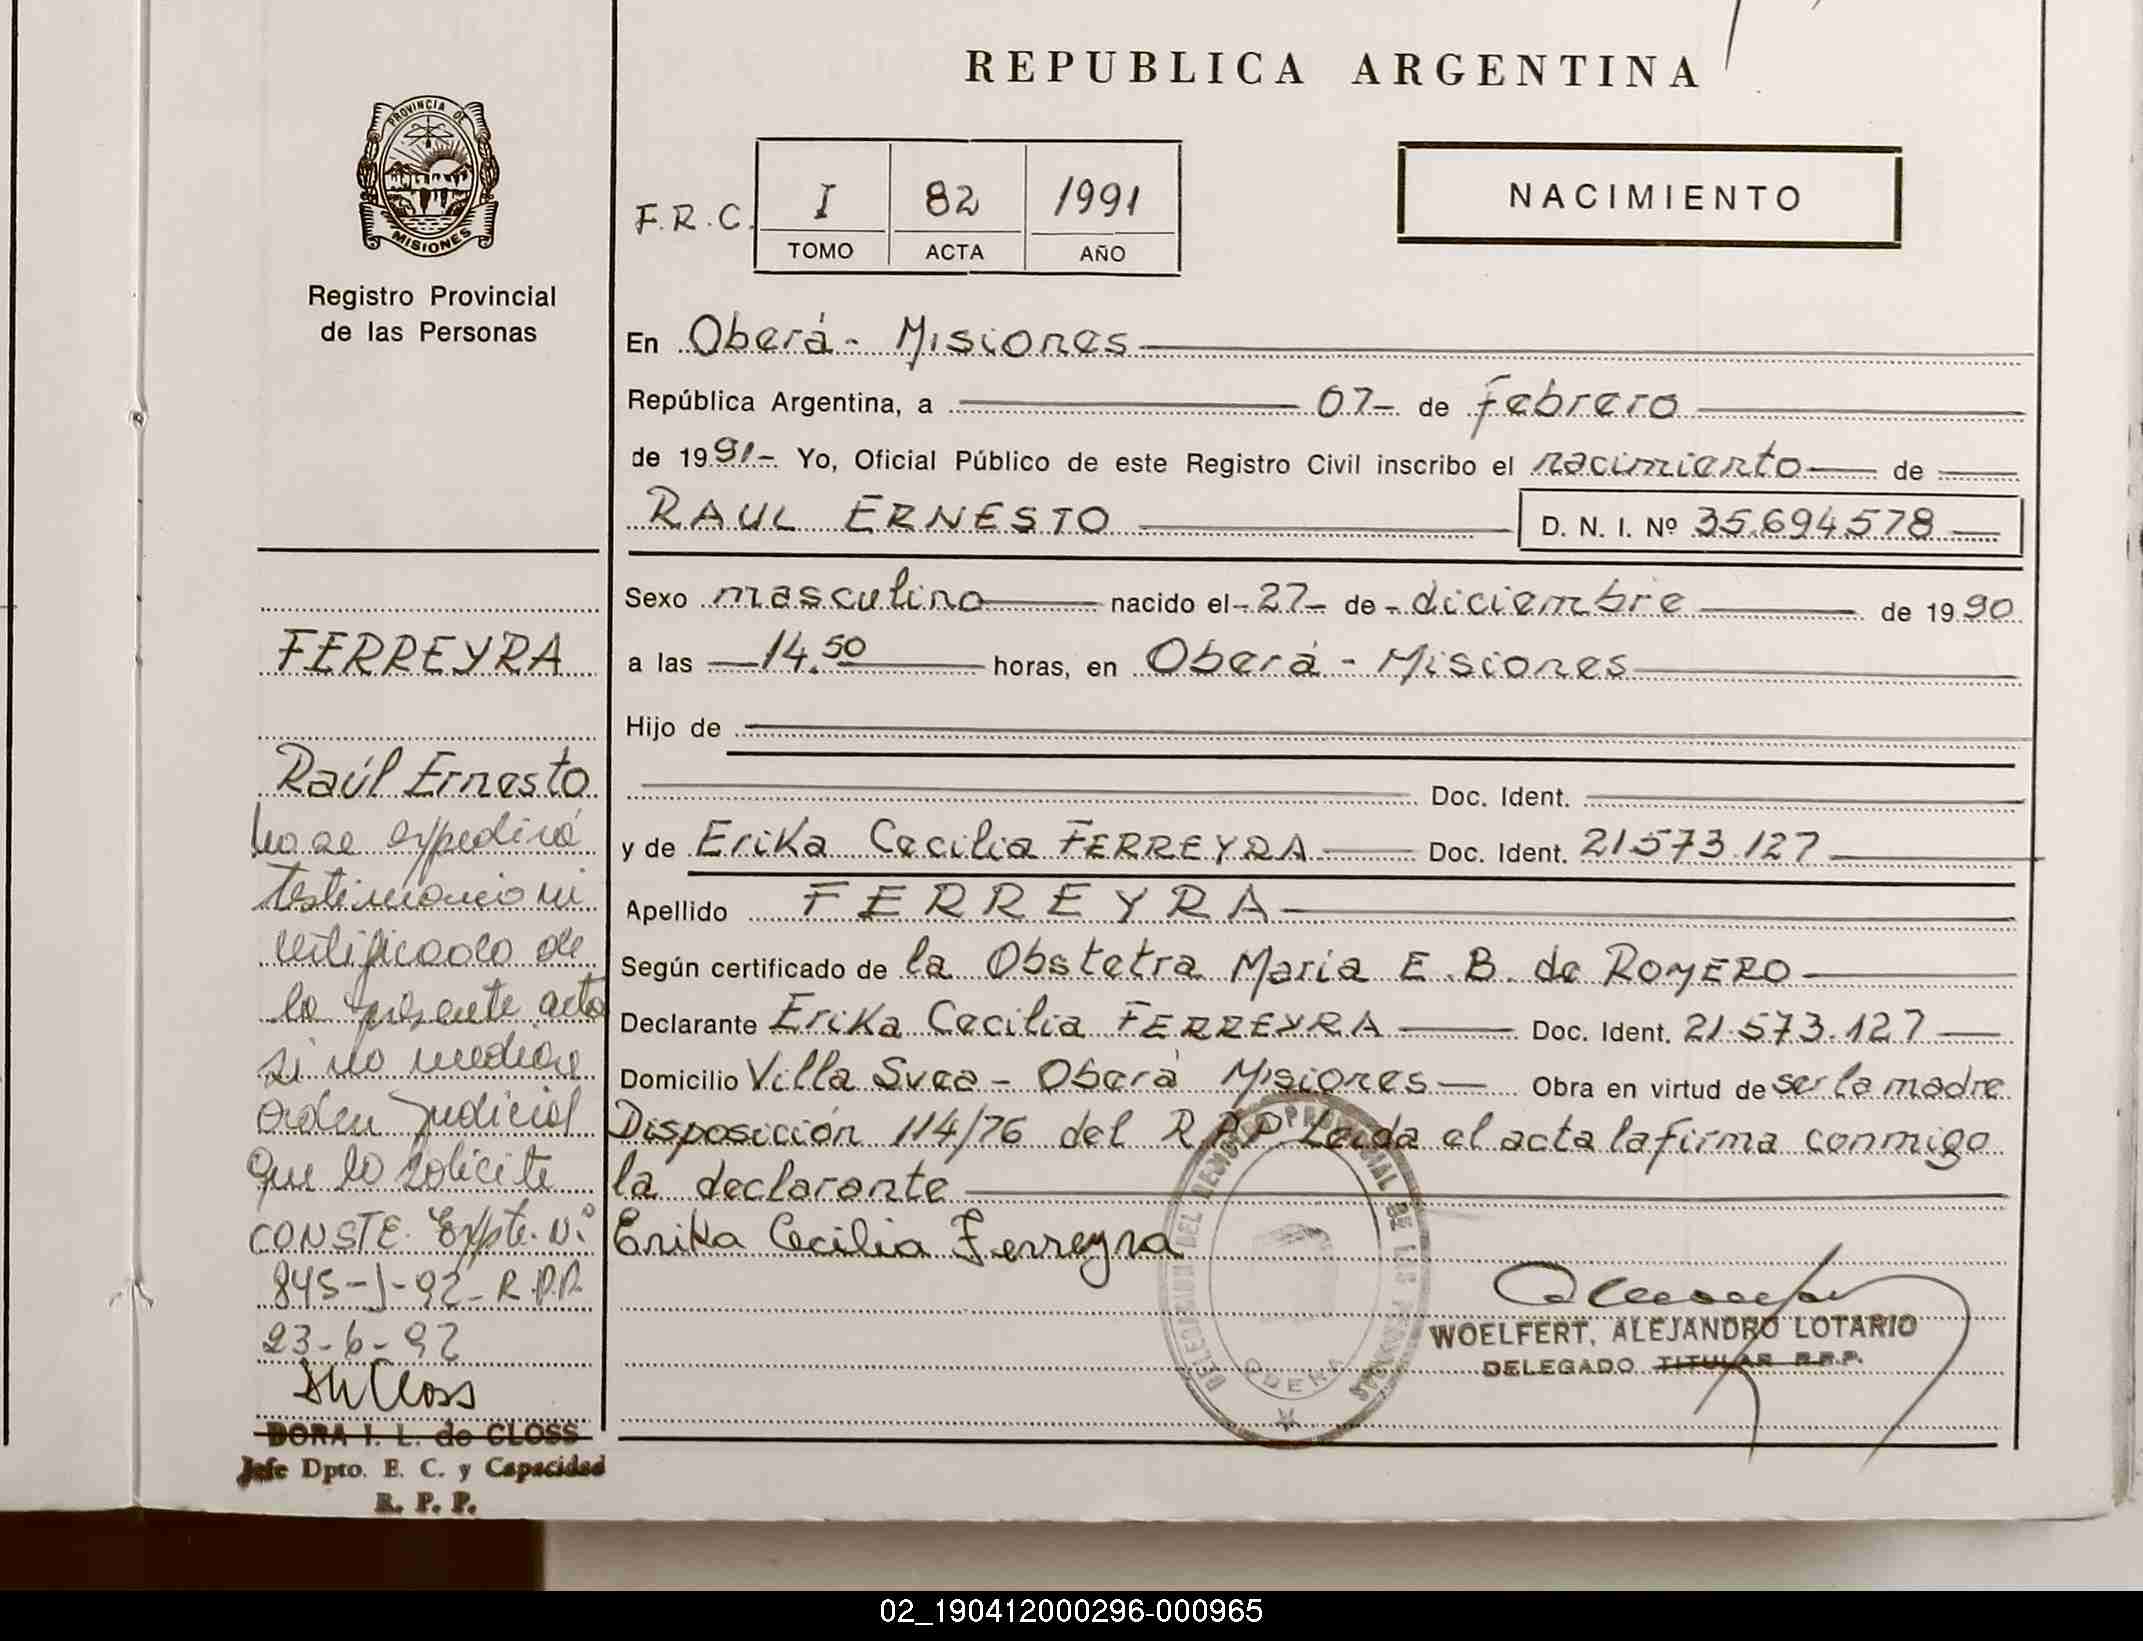 REPUBLICA ARGENTINA
PROVINCIA DE
MISIONES
Registro Provincial
de las Personas
F.R.C. I 82 1991
TOMO ACTA AÑO
NACIMIENTO
En Oberá - Misiones
República Argentina, a 07 - de febrero
de 1991- Yo, Oficial Público de este Registro Civil inscribo el nacimiento de
RAUL ERNESTO D. N. I. Nº 35.694.578
Sexo masculino nacido el - 27 - de - diciembre de 1990
a las 14.50 horas, en Oberá - Misiones
Hijo de
Doc. Ident.
y de Erika Cecilia FERREYRA Doc. Ident. 21.573.127
Apellido FERREYRA
Según certificado de la Obstetra Maria E. B. de ROMERO
Declarante Erika Cecilia FERREYRA Doc. Ident. 21.573.127
Domicilio Villa Svea - Oberá Misiones Obra en virtud de ser la madre
Disposición 114/76 del R.P.P Leida el acta la firma conmigo
la declarante
Erika Cecilia Ferreyra
DELEGACION DEL PROVINCIAL DE LAS PERSONAS
OBERA
WOELFERT, ALEJANDRO LOTARIO
DELEGADO TITULAR R.P.P.
FERREYRA
Raúl Ernesto
No se expedirá
testimonio ni
certificado de
la presente acta
si no media
orden Judicial
que lo solicite
CONSTE. Expte. Nº
845-J-92- R.P.P.
23-6-92
DORA I. L. de CLOSS
Jefe Dpto. E. C. y Capacidad
R. P. P.
02_190412000296-000965